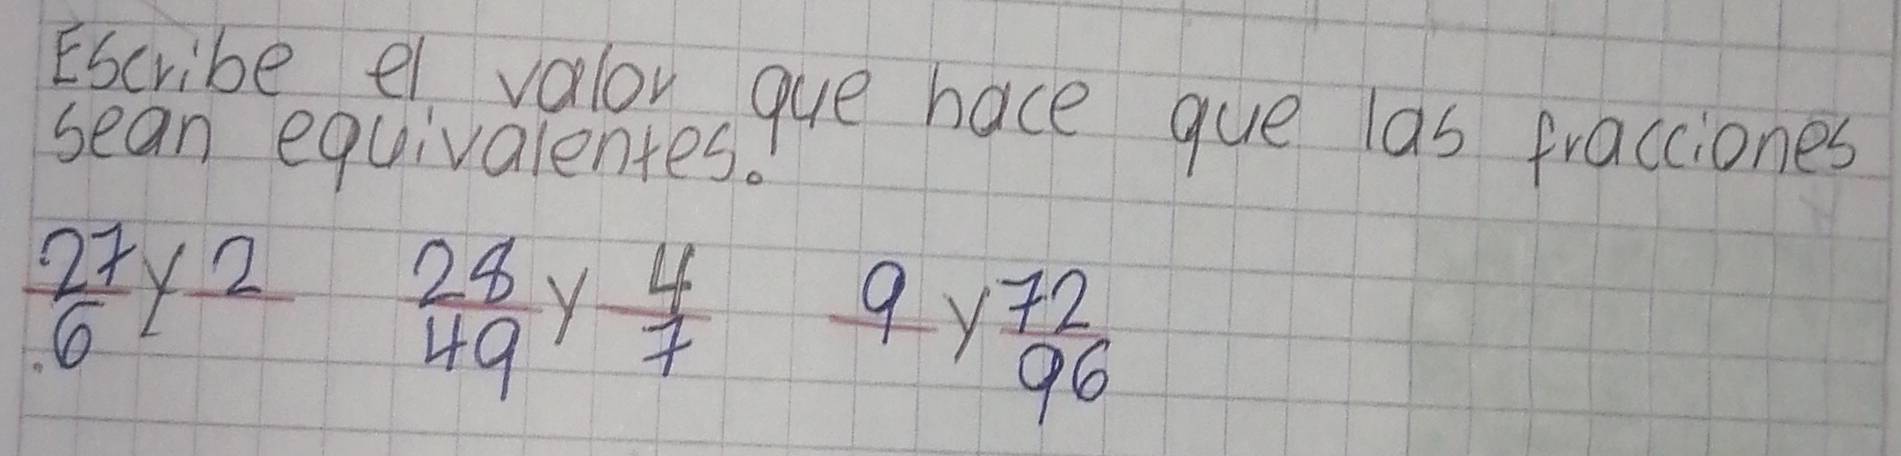 Escribe el valor que hace que las fracciones
sean equivalentes.
27/6 y 2/ 28/49 y 4/7 9/ y 72/96